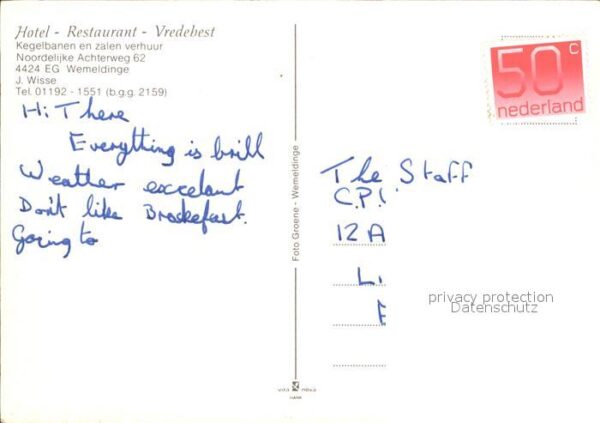 Hotel - Restaurant - Vredebest
Kegelbanen en zalen verhuur
Noordelijke Achterweg 62
4424 EG Wemeldinge
J. Wisse
Tel. 01192 - 1551 (b.g.g. 2159)
Hi There
Everything is brill
Weather excelant
Don't like Brackefast.
Going to
Foto Groene - Wemeldinge
50 c
nederland
The Staff
C.P.!
12 A
L.
E
privacy protection
Datenschutz